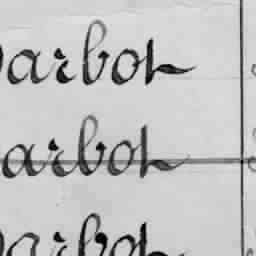 arbot
arbot
arbot